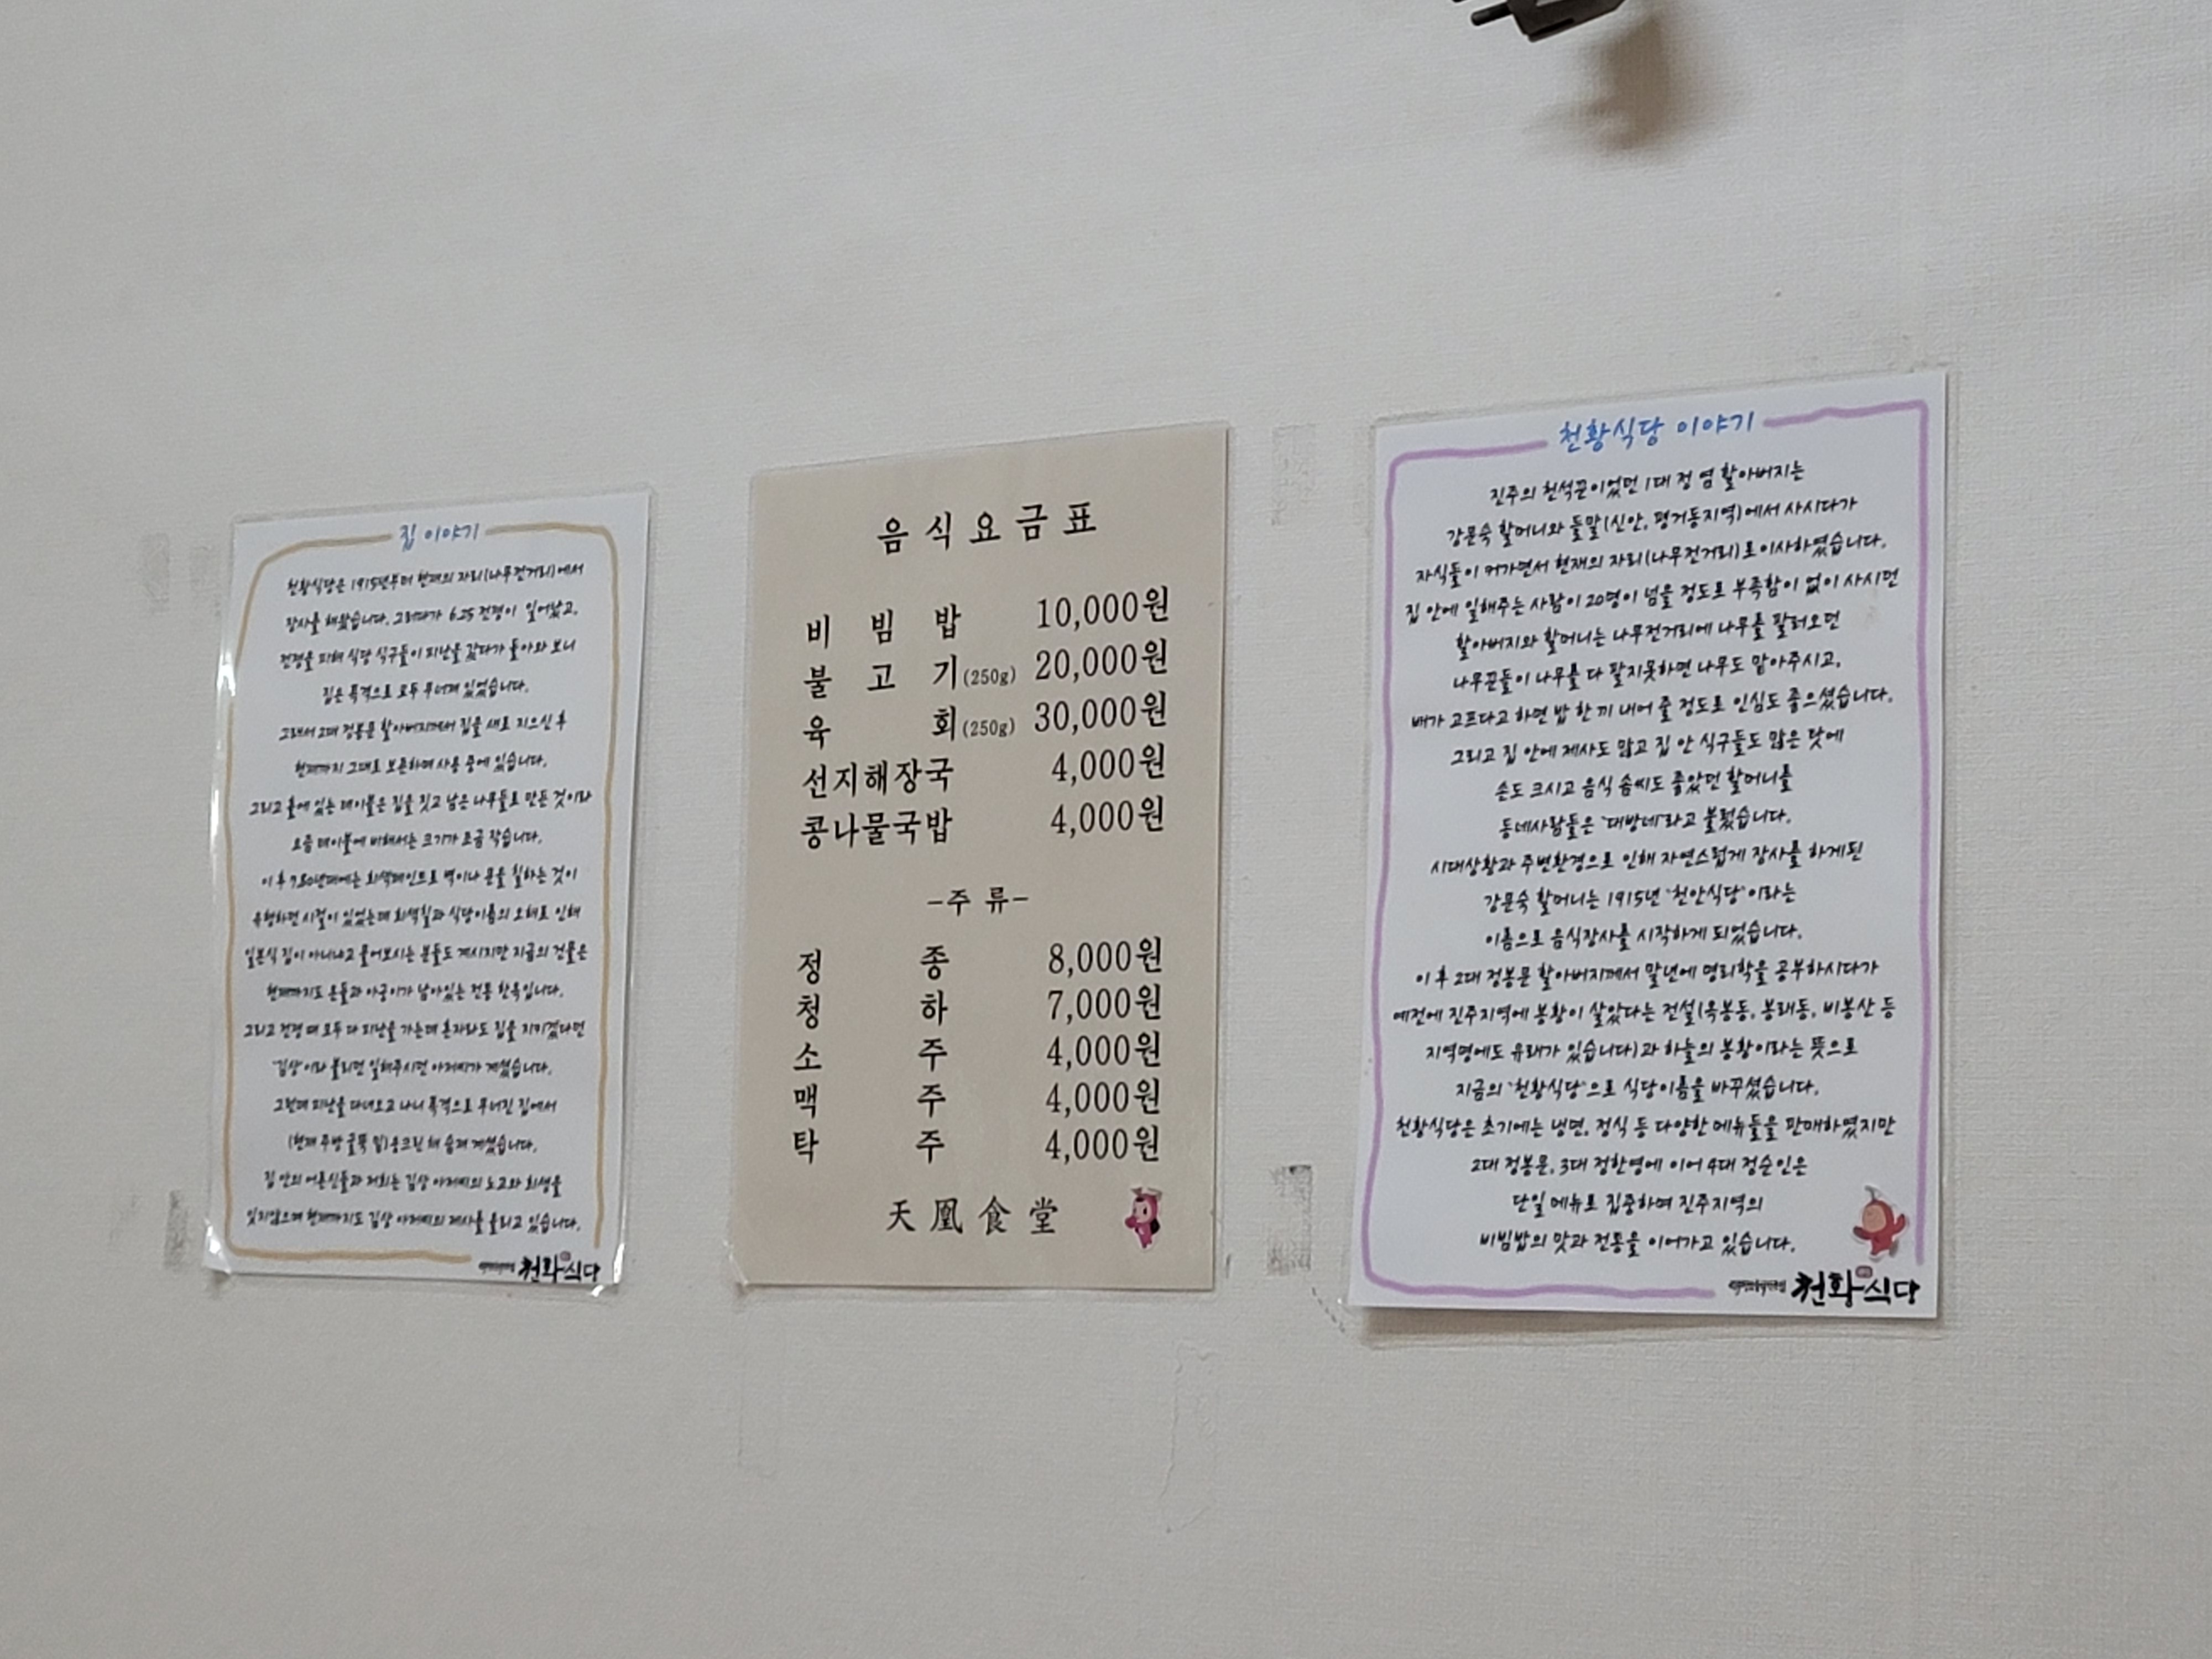 집 이야기
천황식당은 1915년부터 현재의 자리(나무전거리)에서
장사를 해왔습니다. 그러다가 6.25 전쟁이 일어났고,
전쟁을 피해 식당 식구들이 피난을 갔다가 돌아와 보니
집은 폭격으로 모두 무너져 있었습니다.
그래서 2대 정봉문 할아버지께서 집을 새로 지으신 후
현재까지 그대로 보존하며 사용 중에 있습니다.
그리고 홀에 있는 테이블은 집을 짓고 남은 나무들로 만든 것이라
요즘 테이블에 비해서는 크기가 조금 작습니다.
이 후 7,80년대에는 회색페인트로 벽이나 문을 칠하는 것이
유행하던 시절이 있었는데 회색칠과 식당이름의 오해로 인해
일본식 집이 아니냐고 물어보시는 분들도 계시지만 지금의 건물은
현재까지도 온돌과 아궁이가 남아있는 전통 한옥입니다.
그리고 전쟁 때 모두 다 피난을 가는데 혼자라도 집을 지키겠다던
'김상'이라 불리던 일해주시던 아저씨가 계셨습니다.
그런데 피난을 다녀오고 나니 폭격으로 무너진 집에서
(현재 주방 굴뚝 밑)웅크린 채 숨져 계셨습니다.
집 안의 어른신들과 저희는 김상 아저씨의 노고와 희생을
잊지않으며 현재까지도 김상 아저씨의 제사를 올리고 있습니다.
천황식당
음식요금표
비빔밥 10,000원
불고기(250g) 20,000원
육회(250g) 30,000원
선지해장국 4,000원
콩나물국밥 4,000원
-주류-
정종 8,000원
청하 7,000원
소주 4,000원
맥주 4,000원
탁주 4,000원
天凰食堂
천황식당 이야기
진주의 천석꾼이었던 1대 정 염 할아버지는
강문숙 할머니와 들말(신안, 평거동지역)에서 사시다가
자식들이 커가면서 현재의 자리(나무전거리)로 이사하였습니다.
집 안에 일해주는 사람이 20명이 넘을 정도로 부족함이 없이 사시던
할아버지와 할머니는 나무전거리에 나무를 팔러오던
나무꾼들이 나무를 다 팔지못하면 나무도 맡아주시고,
배가 고프다고 하면 밥 한 끼 내어 줄 정도로 인심도 좋으셨습니다.
그리고 집 안에 제사도 많고 집 안 식구들도 많은 탓에
손도 크시고 음식 솜씨도 좋았던 할머니를
동네사람들은 '대방네'라고 불렀습니다.
시대상황과 주변환경으로 인해 자연스럽게 장사를 하게된
강문숙 할머니는 1915년 '천안식당'이라는
이름으로 음식장사를 시작하게 되었습니다.
이 후 2대 정봉문 할아버지께서 말년에 명리학을 공부하시다가
예전에 진주지역에 봉황이 살았다는 전설(옥봉동, 봉래동, 비봉산 등
지역명에도 유래가 있습니다)과 하늘의 봉황이라는 뜻으로
지금의 '천황식당'으로 식당이름을 바꾸셨습니다.
천황식당은 초기에는 냉면, 정식 등 다양한 메뉴들을 판매하였지만
2대 정봉문, 3대 정한영에 이어 4대 정순인은
단일 메뉴로 집중하며 진주지역의
비빔밥의 맛과 전통을 이어가고 있습니다.
천황식당